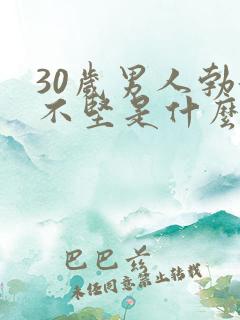 30岁男人勃
不坚是什么
巴巴爷
未经同意禁止转载